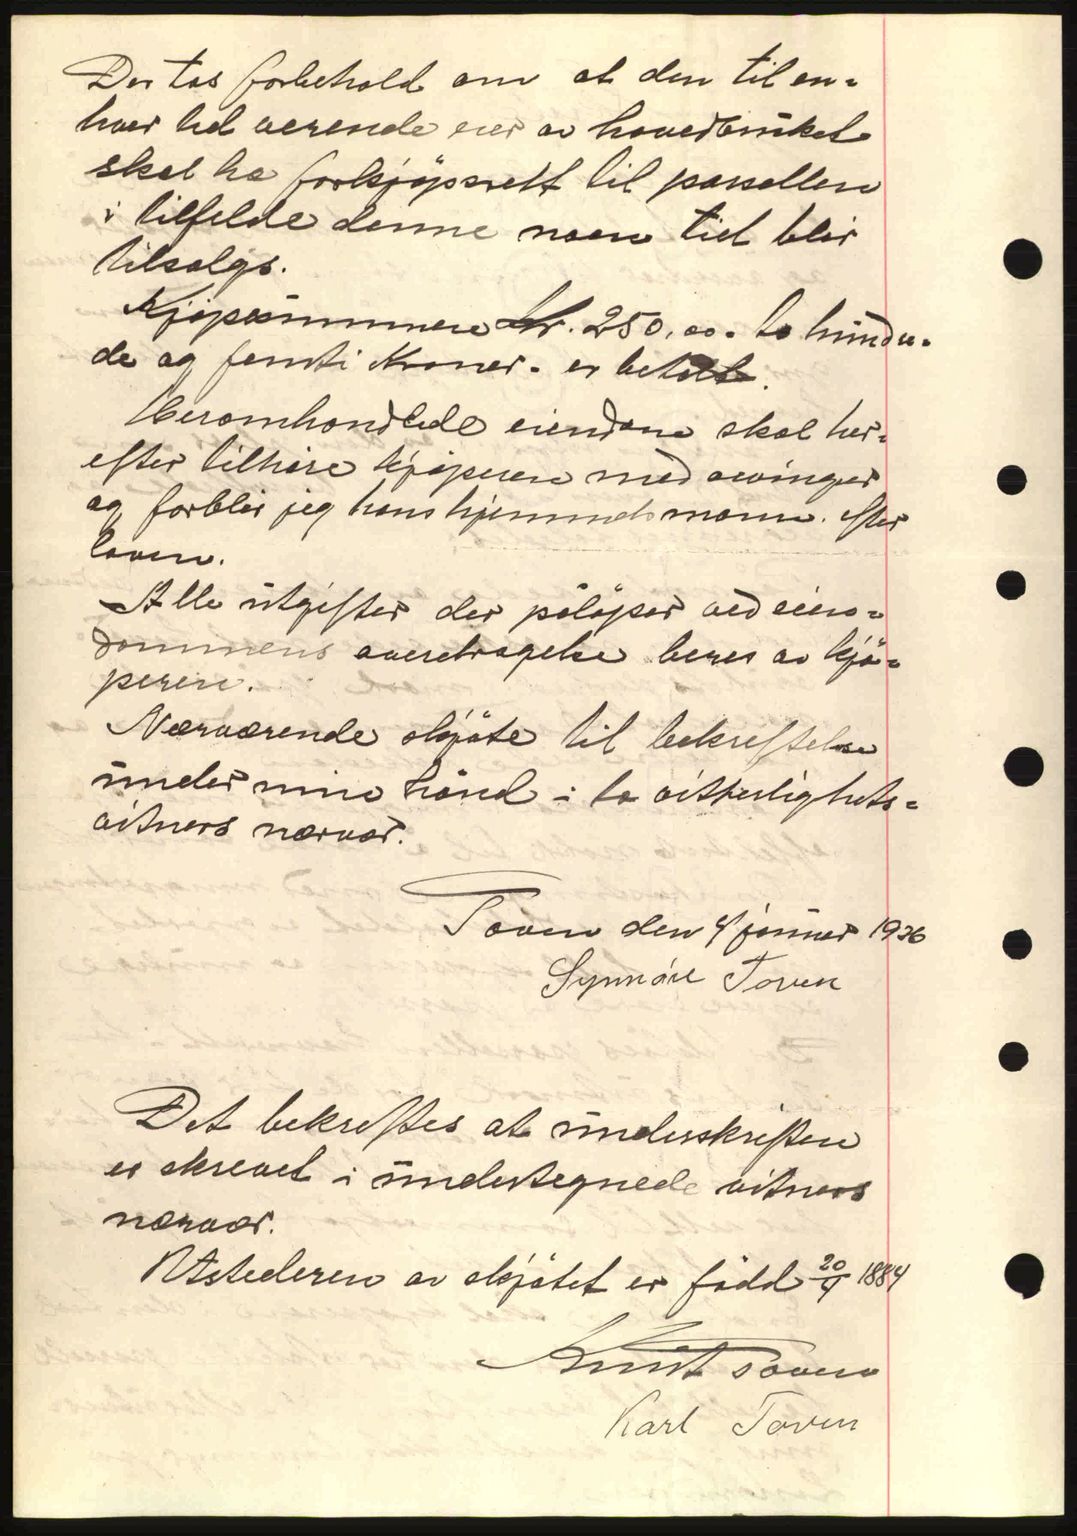 Der tas forbehold om at den til en-
hver tid verende eier av hovedbruket
skal ha forkjöpsrett til parsellen
i tilfelde denne noen tid blir
tilsalgs.
Kjöpesummen kr. 250,00 - to hundre-
de og femti kroner - er betalt.
Heromhandlede eiendom skal her-
efter tilhöre kjöperen med
og forblir jeg hans hjemmelsmann efter
loven.
Alle utgifter der pålöper ved eien-
dommens overdragelse beres av kjö-
peren.
Nærværende skjöte til bekreftelse
under min hånd i to vitterlighets-
vitners nærvær.
Toven den 4 januar 1936
Synnöve Toven
Det bekreftes at underskriften
er skrevet i undertegnede vitners
nærvær.
Utstederen av skjötet er född 20/4 1884
Knut Toven
Karl Toven